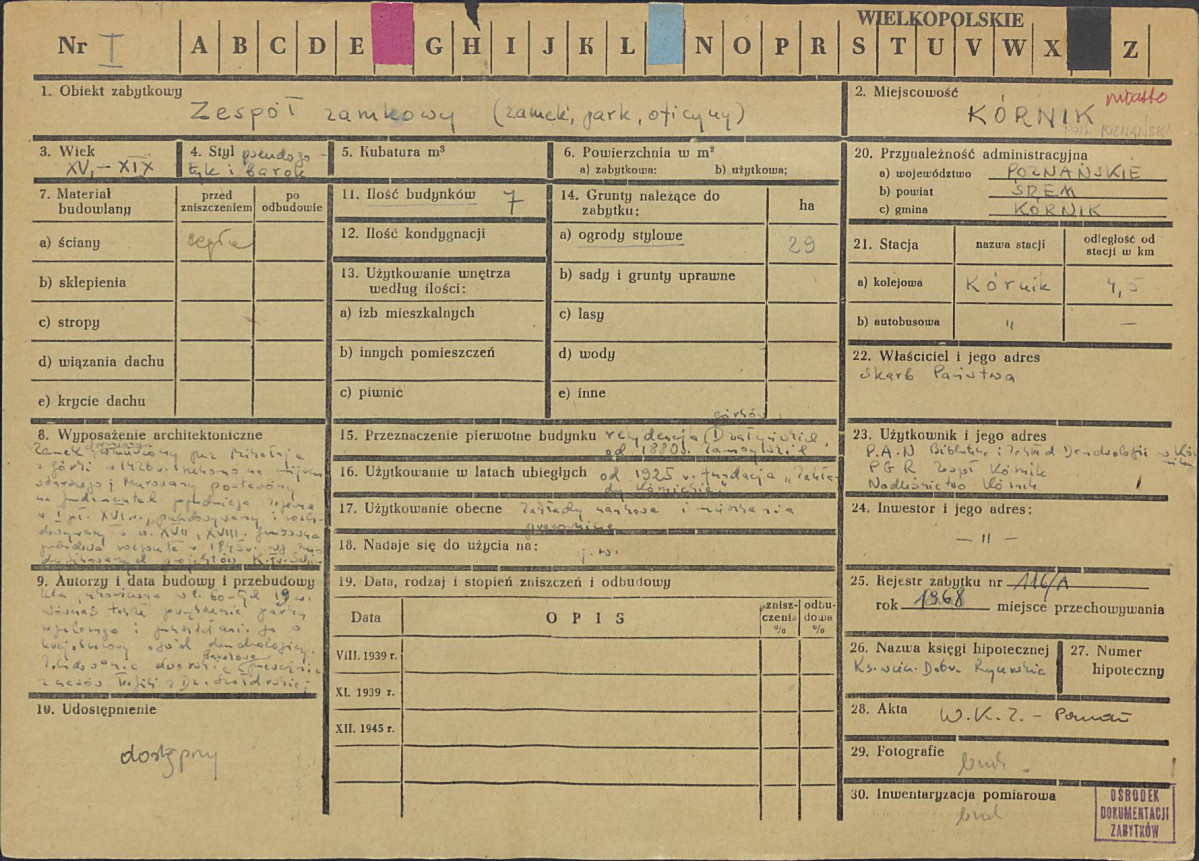 WIELKOPOLSKIE
Nr I A B C D E G H I J K L N O P R S T U V W X Z
1. Obiekt zabytkowy
Zespół zamkowy (zamek, park, oficyny)
2. Miejscowość
miasto
KÓRNIK
POW. POZNAŃSKI
3. Wiek
XV, – XIX
4. Styl pseudogo-
tyk i barok
5. Kubatura m³
6. Powierzchnia w m²
a) zabytkowa: b) użytkowa;
7. Materiał budowlany
przed zniszczeniem
po odbudowie
a) ściany cegła
b) sklepienia
c) stropy
d) wiązania dachu
e) krycie dachu
11. Ilość budynków 7
12. Ilość kondygnacji
13. Użytkowanie wnętrza
według ilości:
a) izb mieszkalnych
b) innych pomieszczeń
c) piwnic
14. Grunty należące do
zabytku: ha
a) ogrody stylowe 29
b) sady i grunty uprawne
c) lasy
d) wody
e) inne
20. Przynależność administracyjna
a) województwo POZNAŃSKIE
b) powiat ŚREM
c) gmina KÓRNIK
21. Stacja
nazwa stacji
odległość od stacji w km
a) kolejowa Kórnik 4,5
b) autobusowa " —
22. Właściciel i jego adres
Skarb Państwa
8. Wyposażenie architektoniczne
Zamek przez Mikołaja
z Górki w 1426 r. na miejscu
starszego, Murowany postawiony
na fundamentach
w I pł. XVI w., przebudowywany i
w w. XVII, XVIII. Gruntowna
w 1843 r. wg
projektów K. F.
9. Autorzy i data budowy i przebudowy
w l. 60-tych 19 w.
również
i
ogród dendrologiczny.
z czasów Teofili z Dz. Szołdrskiej
10. Udostępnienie
dostępny
15. Przeznaczenie pierwotne budynku rezydencja Górków, Działyńskich,
od 1880 r. Zamoyskich
16. Użytkowanie w latach ubiegłych od 1925 r. fundacja „Zakła-
dy Kórnickie"
17. Użytkowanie obecne Zakłady naukowe i mieszkania
pracownicze
18. Nadaje się do użycia na: j.w.
19. Data, rodzaj i stopień zniszczeń i odbudowy
Data OPIS zniszczenia % odbudowa %
VIII. 1939 r.
XI. 1939 r.
XII. 1945 r.
23. Użytkownik i jego adres
P.A.N Biblioteka i Zakład Dendrologii w Kór-
niku
PGR Zespół Kórnik
Nadleśnictwo Kórnik
24. Inwestor i jego adres:
— " —
25. Rejestr zabytku nr 116/A
rok 1968 miejsce przechowywania
26. Nazwa księgi hipotecznej
Ks. wiecz. Dobra Rycerskie
27. Numer
hipoteczny
28. Akta W.K.Z. – Poznań
29. Fotografie brak
30. Inwentaryzacja pomiarowa
brak
OŚRODEK
DOKUMENTACJI
ZABYTKÓW